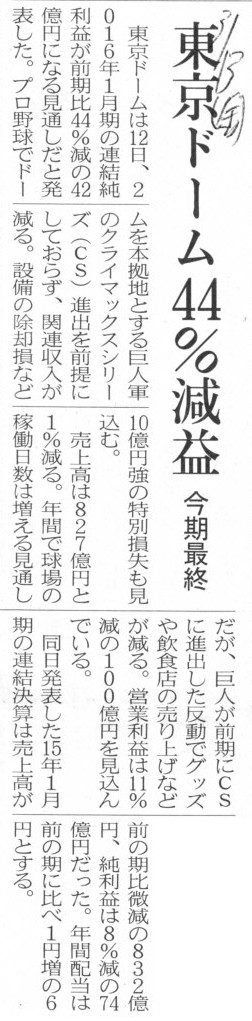 3/13㊎
東京ドーム44%減益
今期最終
東京ドームは12日、2
016年1月期の連結純
利益が前期比44%減の42
億円になる見通しだと発
表した。プロ野球でドー
ムを本拠地とする巨人軍
のクライマックスシリー
ズ（CS）進出を前提に
しておらず、関連収入が
減る。設備の除却損など
10億円強の特別損失も見
込む。
売上高は827億円と
1%減る。年間で球場の
稼働日数は増える見通し
だが、巨人が前期にCS
に進出した反動でグッズ
や飲食店の売り上げなど
が減る。営業利益は11%
減の100億円を見込ん
でいる。
同日発表した15年1月
期の連結決算は売上高が
前の期比微減の832億
円、純利益は8%減の74
億円だった。年間配当は
前の期に比べ1円増の6
円とする。